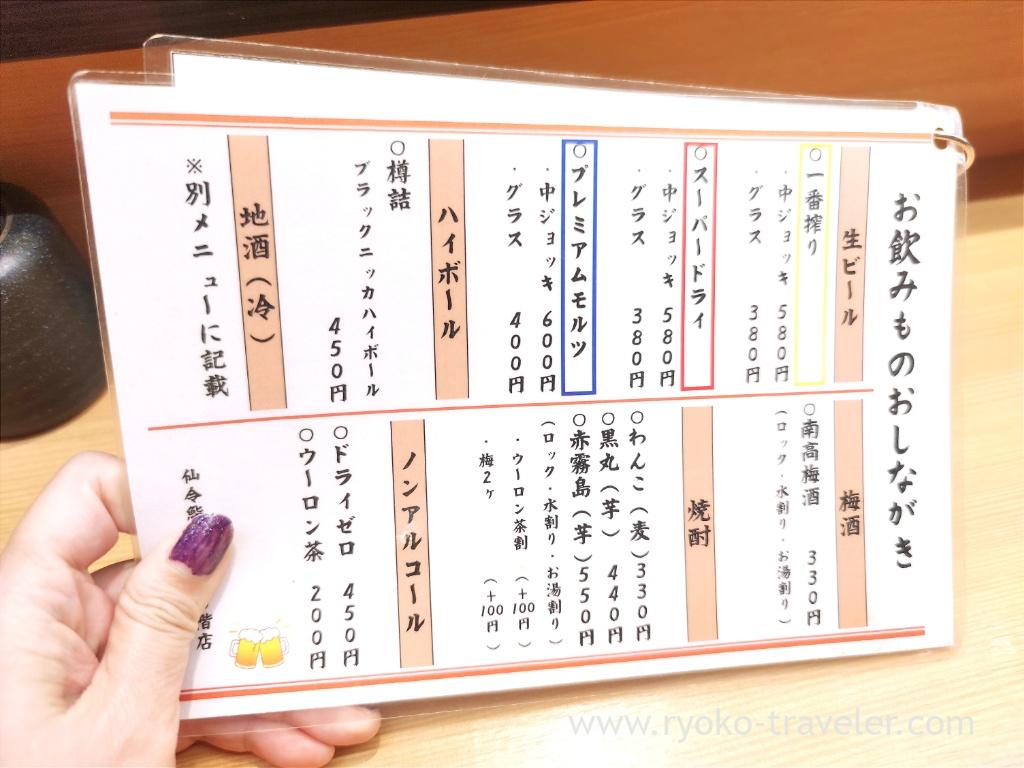 お飲みものおしながき
生ビール
○一番搾り
・中ジョッキ 580円
・グラス 380円
○スーパードライ
・中ジョッキ 580円
・グラス 380円
○プレミアムモルツ
・中ジョッキ 600円
・グラス 400円
ハイボール
○樽詰
ブラックニッカハイボール
450円
地酒(冷)
※別メニューに記載
梅酒
○南高梅酒 330円
(ロック・水割り・お湯割り)
焼酎
○わんこ(麦)330円
○黒丸(芋) 440円
○赤霧島(芋)550円
(ロック・水割り・お湯割り)
・ウーロン茶割 (+100円)
・梅2ヶ (+100円)
ノンアルコール
○ドライゼロ 450円
○ウーロン茶 200円
仙令鮨
階店
www.ryoko-traveler.com